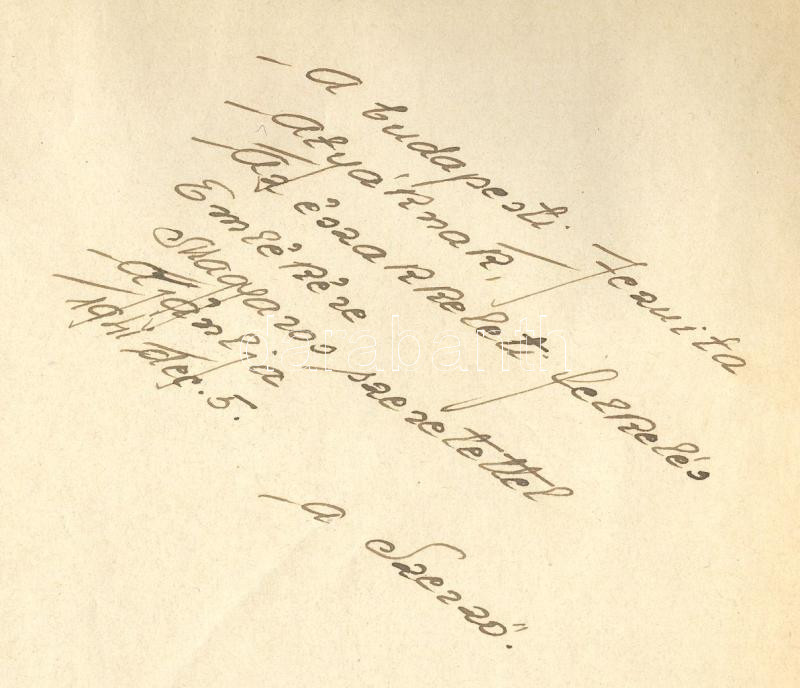 A budapesti Jezsuita
Atyáknak,
Az északkeleti felkelés
Emlékére
Magyaros szeretettel
Ajánlja
1941 dec. 5.
a Szerző.
darabanth